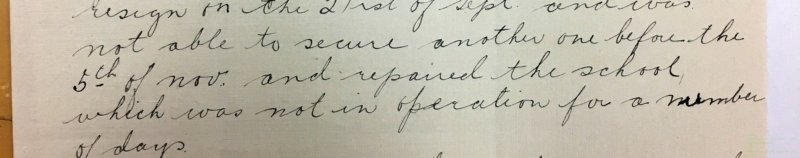 resign on the 21st of Sept. and was
not able to secure another one before the
5th of nov. and repaired the school,
which was not in operation for a number
of days.